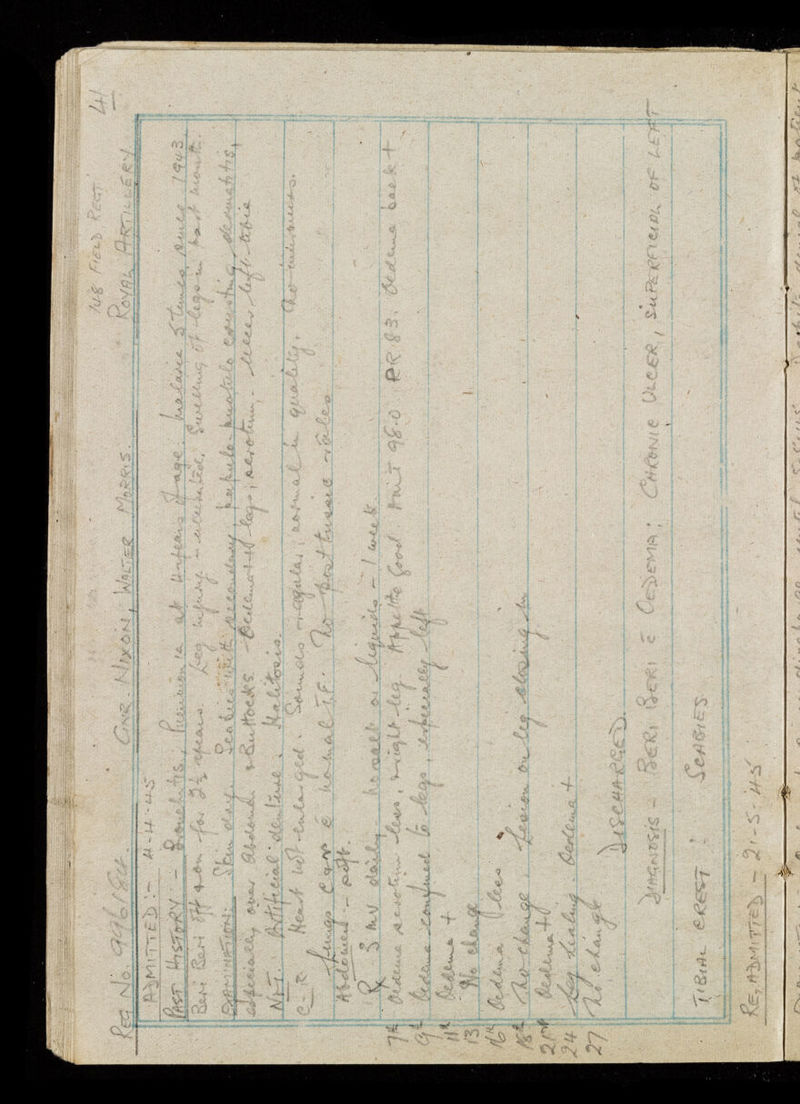 148 FIELD REGT. 41
REG NO. 996184. GNR. NIXON, WALTER MORRIS. ROYAL ARTILLERY
ADMITTED:- 4-4-45
PAST HISTORY:- Bronchitis, Pneumonia at 4 years of age. Malaria 5 times since 1943
Beri Beri off & on for 2½ years. Leg injury - ulcerated. Swelling of legs in past month.
EXAMINATION. Skin dry. Scabies with secondary papulo-pustulo crusting dermatitis,
especially over abdomen & Buttocks - Oedema ++ legs, scrotum. Ulcer left tibia
N.&T. Artificial denture. Halitosis.
C-R Heart not enlarged. Sounds regular, normal in quality. No murmurs.
Lungs c̄ normal No post tussic rales
Abdomen - soft.
℞ 3 daily. no salt or liquids - 1 week.
7th Oedema scrotum less, right leg. Appetite good. 98.0 PR 83. Oedema back +
9th Oedema confined to legs, especially left
11th Oedema +
13 No change
16 Oedema less
18th No change. Lesion on leg closing in
21st Oedema +
24 Leg healing. Oedema +
27 No change DISCHARGED.
DIAGNOSIS - BERI BERI c̄ OEDEMA; CHRONIC ULCER, SUPERFICIAL OF LEFT
TIBIAL CREST: SCABIES
RE, ADMITTED - 21-5-45